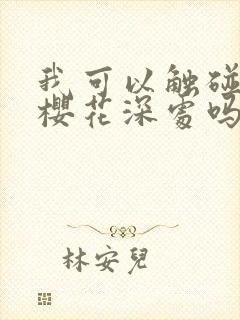 我可以触碰
樱花深处吗
林安兒